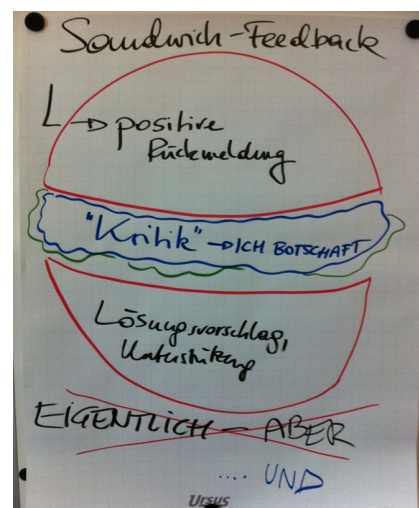 Sandwich-Feedback
L → positive
Rückmeldung
"Kritik" → ICH BOTSCHAFT
Lösungsvorschlag,
Unterstützung
EIGENTLICH - ABER
.... UND
Ursus